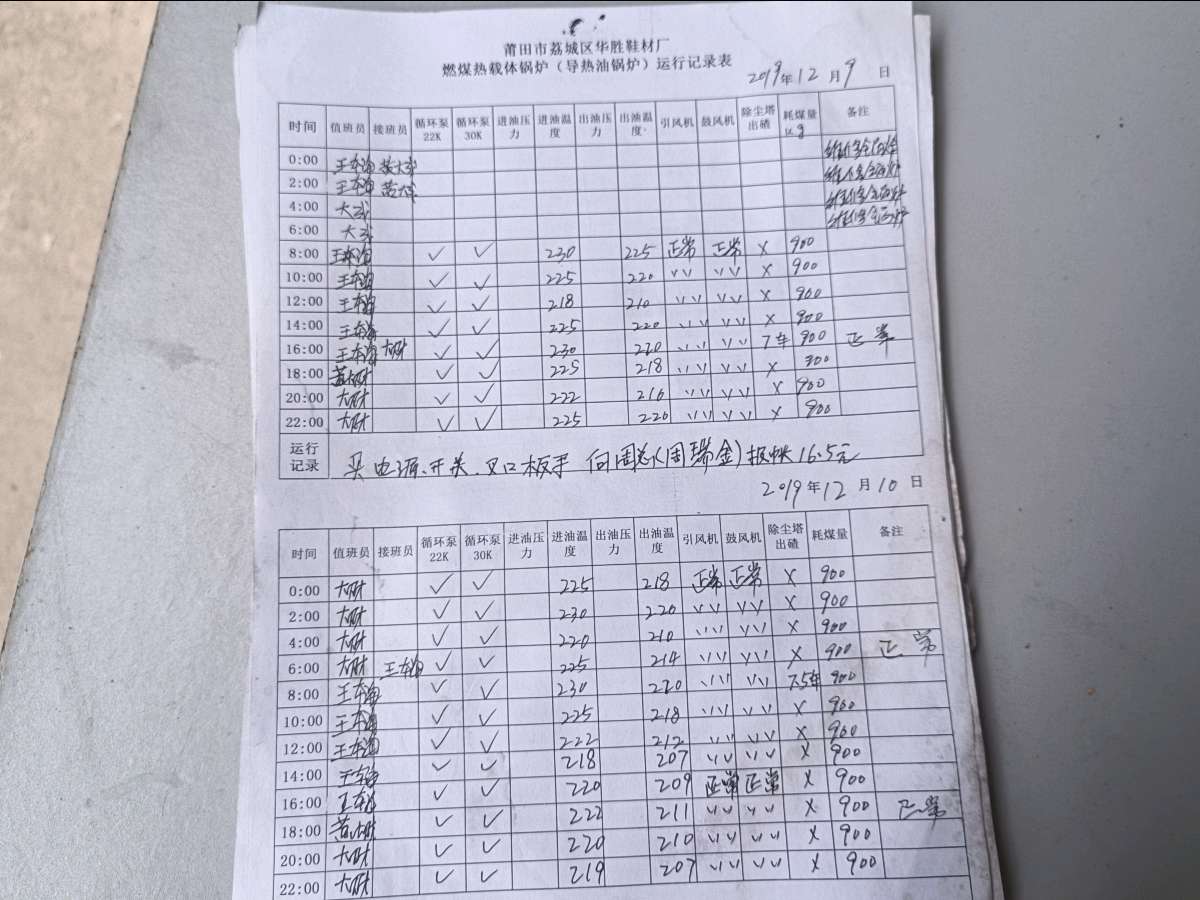 莆田市荔城区华胜鞋材厂
燃煤热载体锅炉（导热油锅炉）运行记录表
2019年12月9日
时间 值班员 接班员 循环泵22K 循环泵30K 进油压力 进油温度 出油压力 出油温度 引风机 鼓风机 除尘塔出碴 耗煤量kg 备注
0:00 王本海
2:00 王本海
4:00
6:00
8:00 王本海 ✓ ✓ 230 225 正常 正常 × 900
10:00 王本海 ✓ ✓ 225 220 ✓✓ ✓✓ × 900
12:00 王本海 ✓ ✓ 218 210 ✓✓ ✓✓ × 900
14:00 王本海 ✓ ✓ 225 220 ✓✓ ✓✓ × 900
16:00 王本海 大财 ✓ ✓ 230 220 ✓✓ ✓✓ 7车 900 正常
18:00 大财 ✓ ✓ 225 218 ✓✓ ✓✓ × 900
20:00 大财 ✓ ✓ 222 216 ✓✓ ✓✓ × 900
22:00 大财 ✓ ✓ 225 220 ✓✓ ✓✓ × 900
运行记录 买电源、开关、叉口板手 向周总(周瑞金)报帐16.5元
2019年12月10日
时间 值班员 接班员 循环泵22K 循环泵30K 进油压力 进油温度 出油压力 出油温度 引风机 鼓风机 除尘塔出碴 耗煤量 备注
0:00 大财 ✓ ✓ 225 218 正常 正常 × 900
2:00 大财 ✓ ✓ 230 220 ✓✓ ✓✓ × 900
4:00 大财 ✓ ✓ 220 210 ✓✓ ✓✓ × 900
6:00 大财 王本海 ✓ ✓ 225 214 ✓✓ ✓✓ × 900 正常
8:00 王本海 ✓ ✓ 230 220 ✓✓ ✓✓ 7.5车 900
10:00 王本海 ✓ ✓ 225 218 ✓✓ ✓✓ × 900
12:00 王本海 ✓ ✓ 222 212 ✓✓ ✓✓ × 900
14:00 王本海 ✓ ✓ 218 207 ✓✓ ✓✓ × 900
16:00 王本海 ✓ ✓ 220 209 正常 正常 × 900
18:00 ✓ ✓ 222 211 ✓✓ ✓✓ × 900 正常
20:00 大财 ✓ ✓ 220 210 ✓✓ ✓✓ × 900
22:00 大财 ✓ ✓ 219 207 ✓✓ ✓✓ × 900